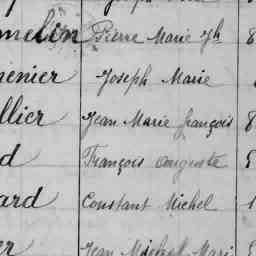 melin Pierre Marie Jh 8
enier Joseph Marie
llier Jean Marie françois 8
d François auguste 5
ard Constant Michel 1
er Jean Michel Mari